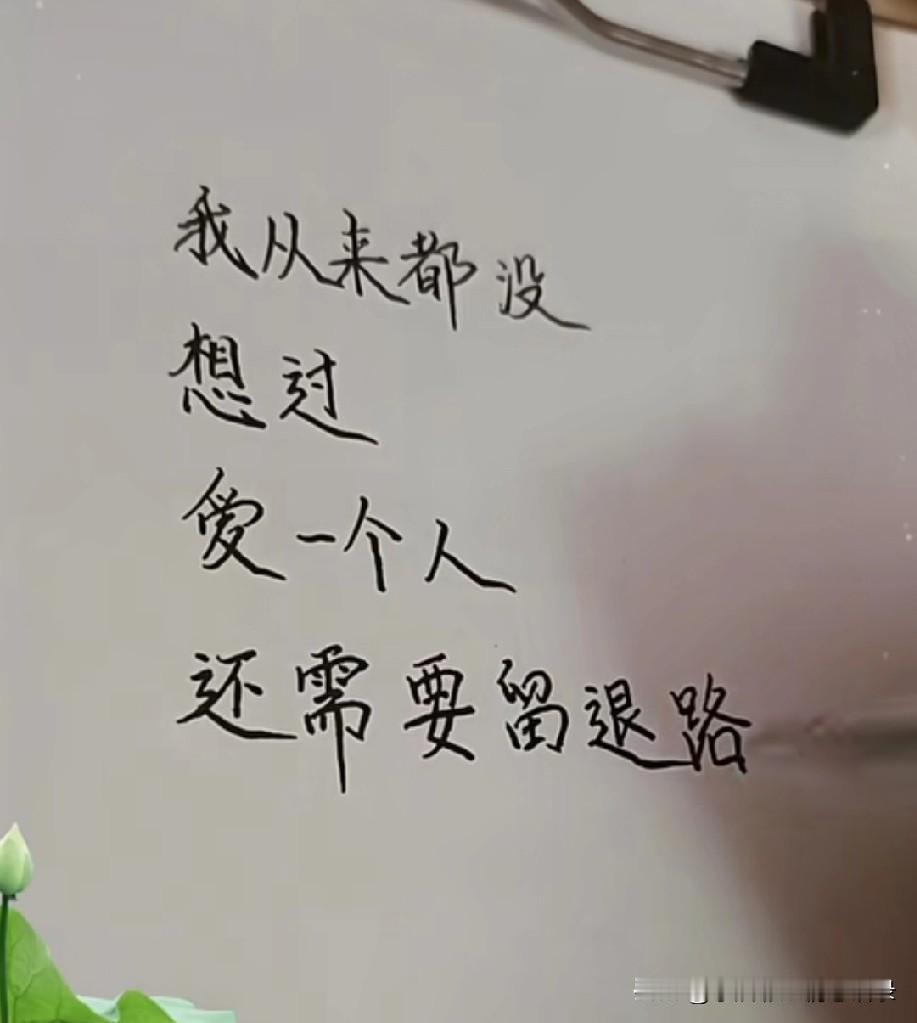 我从来都没
想过
爱一个人
还需要留退路